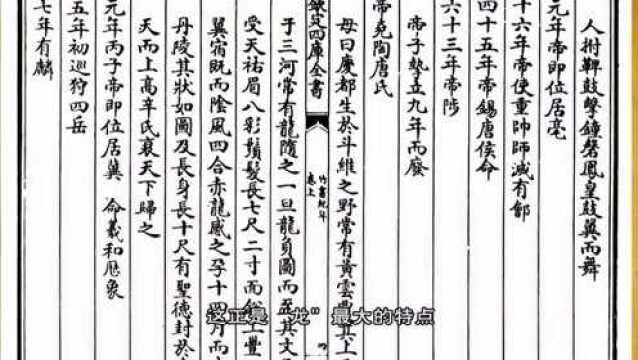 人拊鞞鼓擊鐘磬鳳皇鼓翼而舞
元年帝即位居亳
十六年帝使重帥師滅有鄶
四十五年帝錫唐侯命
六十三年帝陟
帝子摯立九年而廢
帝堯陶唐氏
母曰慶都生於斗維之野常有黃雲覆其上
欽定四庫全書
竹書紀年
卷上
于三河常有龍隨之一旦龍負圖而至其文
受天祐眉八彩鬚髮長七尺二寸面銳上豐
翼宿既而陰風四合赤龍感之孕十四月而
丹陵其狀如圖及長身長十尺有聖德封於
天而上高辛氏衰天下歸之
元年丙子帝即位居冀
命羲和厯象
五年初巡狩四岳
七年有麟
这正是“龙”最大的特点